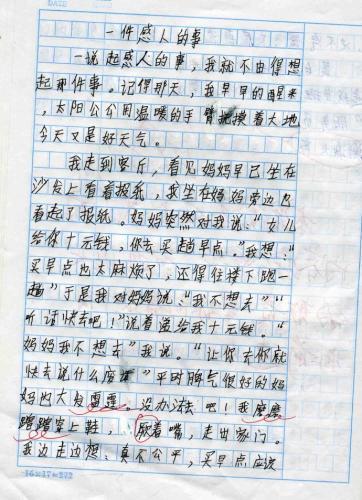 一件感人的事
一说起感人的事，我就不由得想
起那件事。记得那天，我早早的醒来，
太阳公公用温暖的手臂抚摸着大地
今天又是好天气。
我走到客厅，看见妈妈早已坐在
沙发上看着报纸，我坐在妈妈旁边也
看起了报纸。妈妈突然对我说："女儿
给你十元钱，你去买趟早点。"我想："
买早点也太麻烦了，还得往楼下跑一
趟"于是我对妈妈说："我不想去""
听话快去吧！"说着递给我十元钱。"
妈妈我不想去"我说。"让你去你就
快去说什么废"平时脾气很好的妈
妈也大发雷霆。没办法去吧！我磨磨
蹭蹭穿上鞋，撅着嘴，走出家门。
我边走边想：真不公平，买早点应该
16×17=272